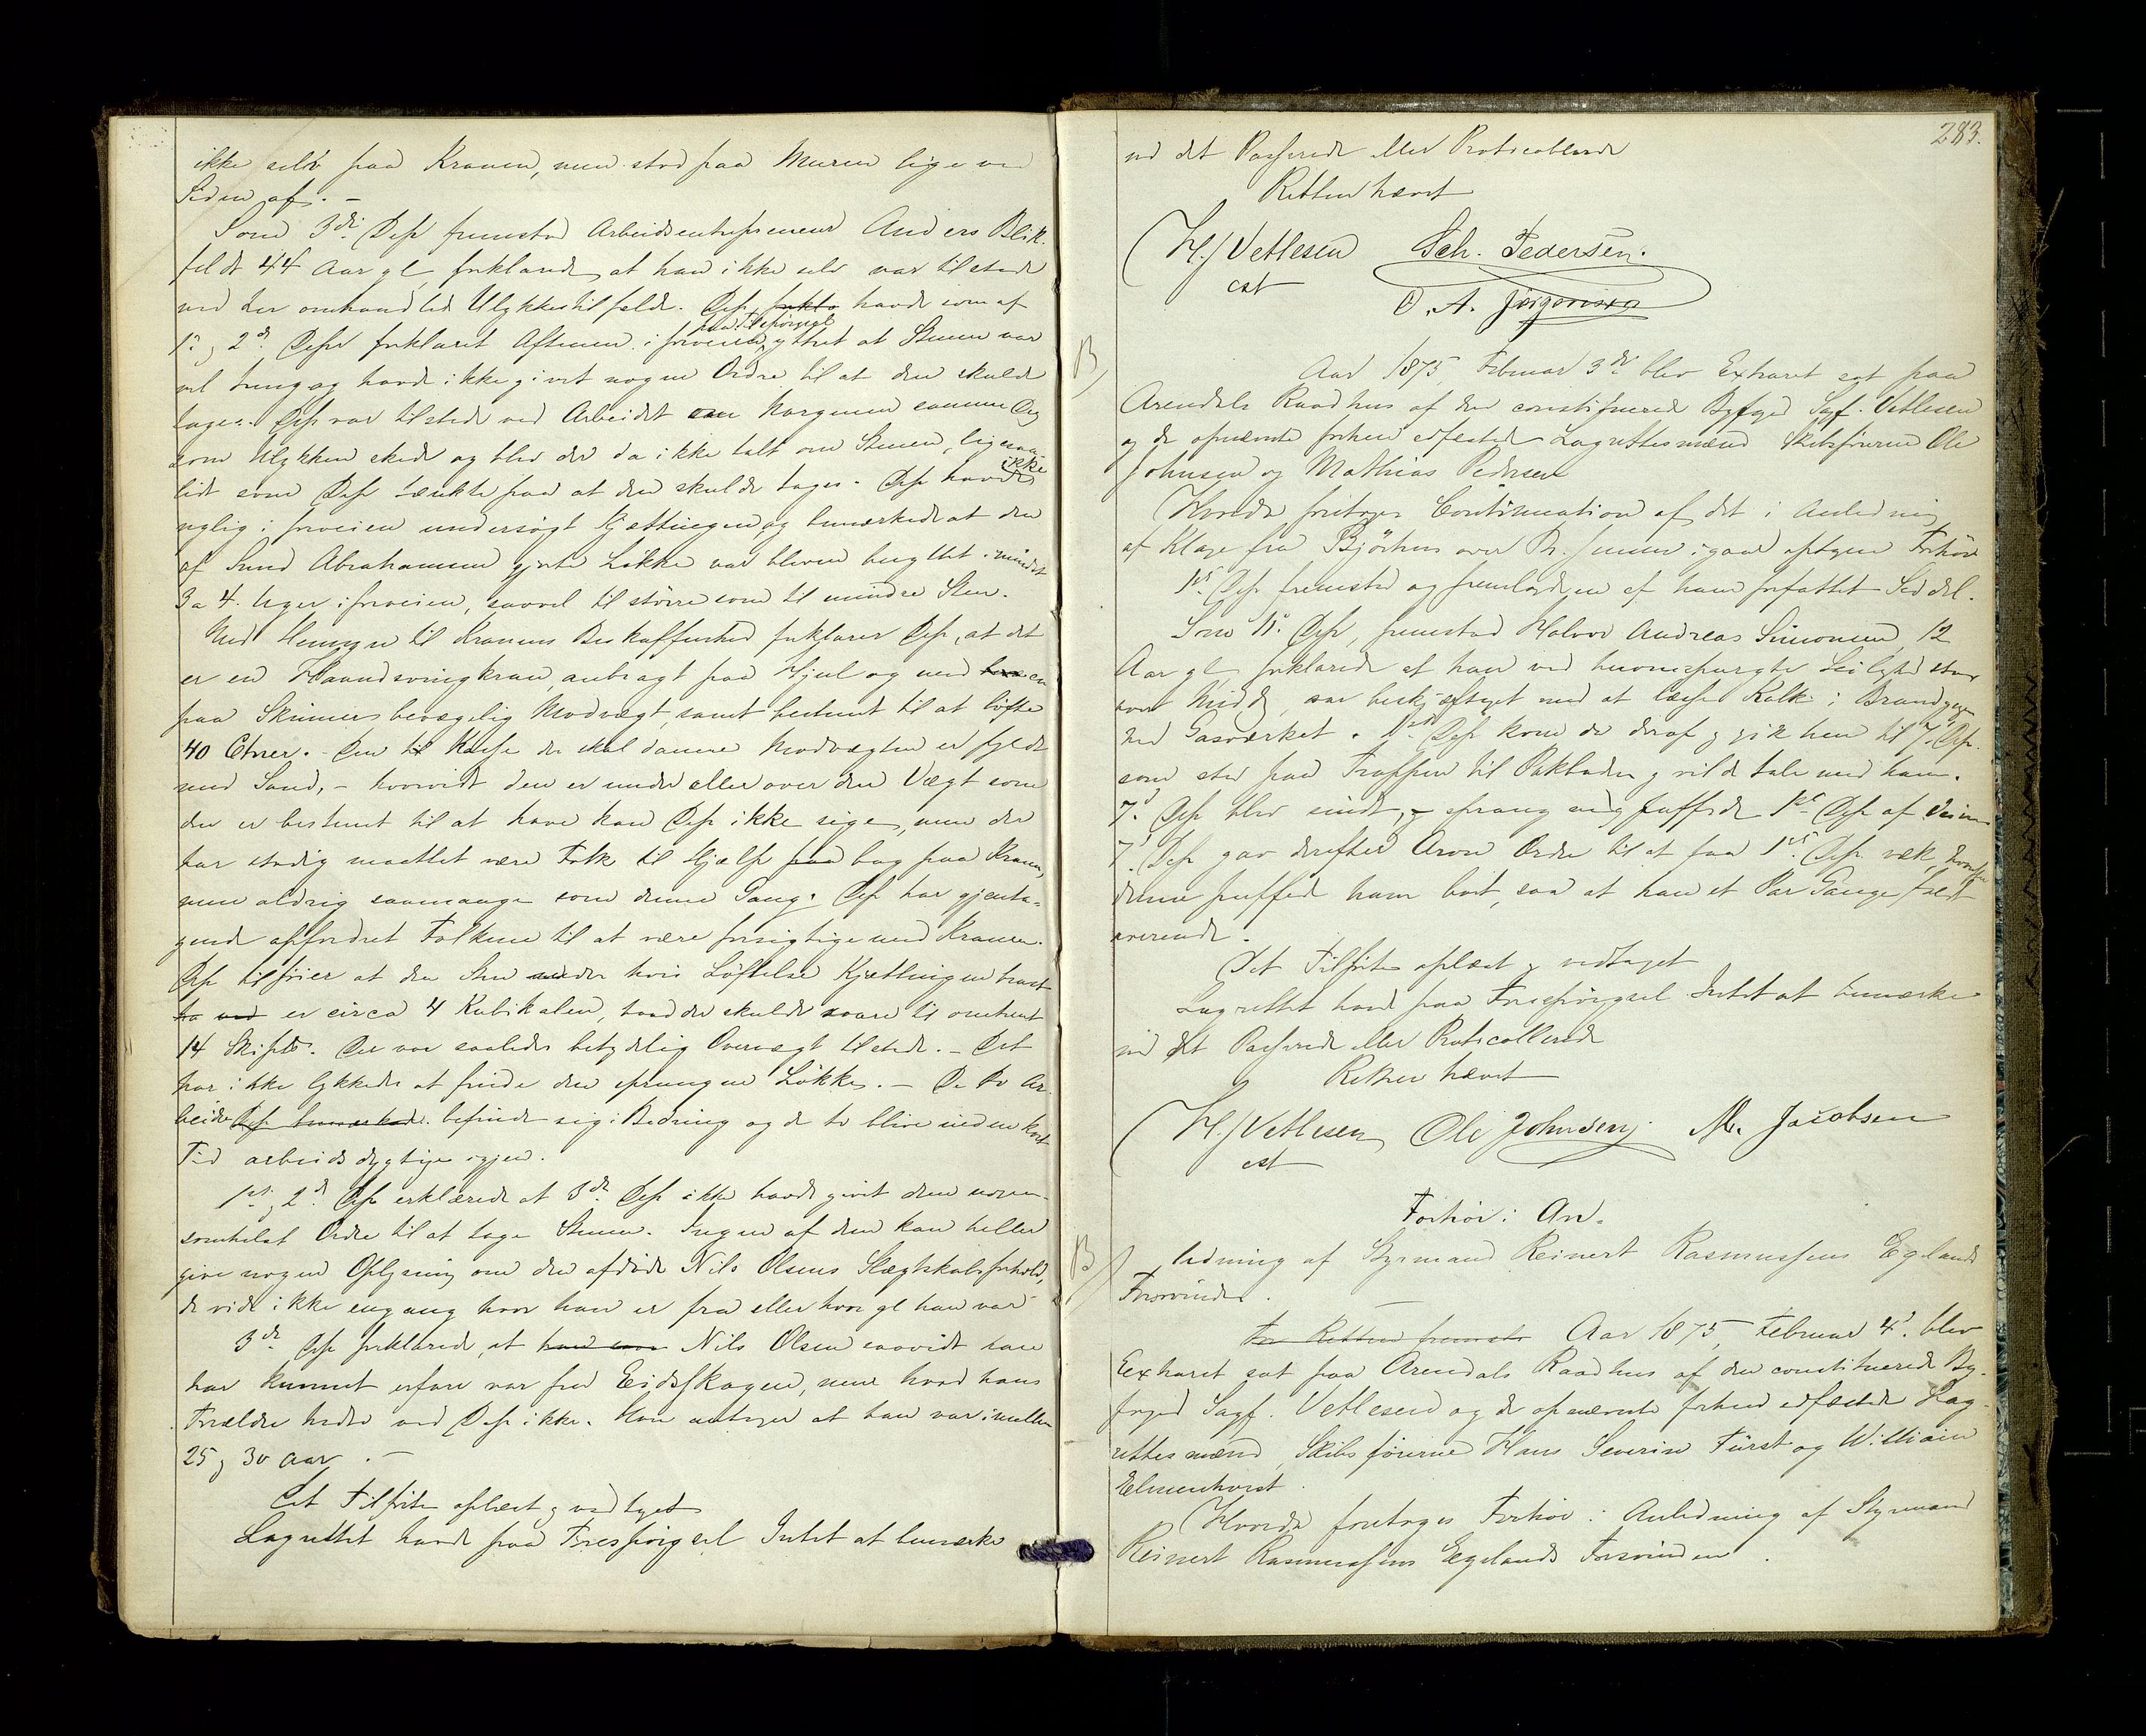 ikke selv paa Kranen, men stod paa Muren lige ved
Siden af. –
Som 3die Dep fremstod Arbeidsentrepreneur Anders Blik-
feldt 44 Aar gl, forklarede at han ikke selv var tilstede
ved her omhandlede Ulykkestilfælde. Dep. havde som af
paa Tilspørgsel
1ste og 2den Depe forklaret Aftenen i forveien yttret at Stenen var
vel tung og havde ikke givet nogen Ordre til at den skulde
tages. Dep var tilstede ved Arbeidet om Morgenen samme Dag
som Ulykken skede og blev der da ikke talt om Stenen, ligesaa-
ikke
lidt som Dep tænkte paa at den skulde tages. Dep havde
nylig i forveien undersøgt Kjættingen, og bemærkede at den
af Smed Abrahamsen gjorte Løkke var bleven benyttet mindst
3 a 4 Uger i forveien, saavel til større som til mindre Sten.
Med Hensyn til Kranens Beskaffenhed forklarer Dep, at det
er en Haandsvingkran, anbragt paa Hjul og med en
paa Skinner bevægelig Modvægt, samt bestemt til at løfte
40 Ctner. – Den Kasse der skal danne Modvægten er fyldt
med Sand, – hvorvidt den er under eller over den Vægt som
den er bestemt til at have kan Dep ikke sige, men der
har stadig maattet være Folk til Hjælp bag paa Kranen,
men aldrig saamange som denne Gang. Dep har gjenta-
gende opfordret Folkene til at være forsigtige med Kranen.
Dep tilføier at den Sten under hvis Løftelse Kjættingen brast
er circa 4 Kubikalen, hvad der skulde svare til omtrent
14 Skipd. Der var saaledes betydelig Overvægt tilstede. – Det
har ikke lykkedes at finde den sprungne Løkke. – De to Ar-
beidere befinder sig i Bedring og de to blive inden kort
Tid arbeidsdygtige igjen.
1ste og 2den Dep erklærede at 3die Dep ikke havde givet dem nogen-
somhelst Ordre til at tage Stenen. Ingen af dem kan heller
give nogen Oplysning om den afdøde Nils Olsens Slægtskabsforhold,
de vide ikke engang hvor han er fra eller hvor gl han var
3die Dep forklarede, at Nils Olsen saavidt han
har kunnet erfare var fra Eidsskogen, men hvad hans
Forældre hedte ved Dep ikke. Han antager at han var imellem
25 og 30 Aar. –
Det Tilførte oplæst og vedtaget
Lagrettet havde paa Forespørgsel Intet at bemærke
283.
ved det Passerede eller Protocollerede
Retten hævet
H. J. Vetlesen Sch. Pedersen.
cst
O. A. Jørgensen
B
Aar 1875, Februar 3die blev Extraret sat paa
Arendals Raadhus af den constituerede Byfoged Sagf. Vetlesen
og de opnævnte forhen edfæstede Lagrettesmænd Skibsførerne Ole
Johnsen og Mathias Pedersen
Hvorda foretoges Continuation af det i Anledning
af Klage fra Bjørhus over B. Jensen igaar optagne Forhør
1ste Dep fremstod og fremlagde en af ham forfattet Seddel.
Som 11te Dep, fremstod Halvor Andreas Simonsen, 12
Aar gl, forklarede at han ved heromspurgte Leilighed strax
var beskjæftiget med at læsse Kalk i Brandgaden
ved Gasværket. 1ste Dep kom da deraf og gik hen til 7de Dep.
som stod paa Trappen til Pakboden og vilde tale med ham.
7de Dep blev sindt, sprang ned og puffede 1ste Dep af Veien
7de Dep gav derefter Aron Ordre til at faa 1ste Dep. væk, hvorefter
denne puffede ham bort, saa at han et Par Gange faldt
overende.
Det Tilførte oplæst og vedtaget
Lagrettet havde paa Forespørgsel Intet at bemærke
ved det Passerede eller Protocollerede
Retten hævet
H. J. Vetlesen Ole Johnsen. M. Jacobsen
cst
Forhør i An-
B
ledning af Styrmand Reinert Rasmussens Egelands
Forsvinden.
For Retten fremst Aar 1875, Februar 4de. blev
Extraret sat paa Arendals Raadhus af den constituerede By-
foged Sagf. Vetlesen og de opnævnte forhen edfæstede Lag-
rettesmænd, Skibsførerne Hans Severin Fürst og William
Elmenhorst.
Hvorda foretoges Forhør i Anledning af Styrmand
Reinert Rasmussens Egelands Forsvinden.